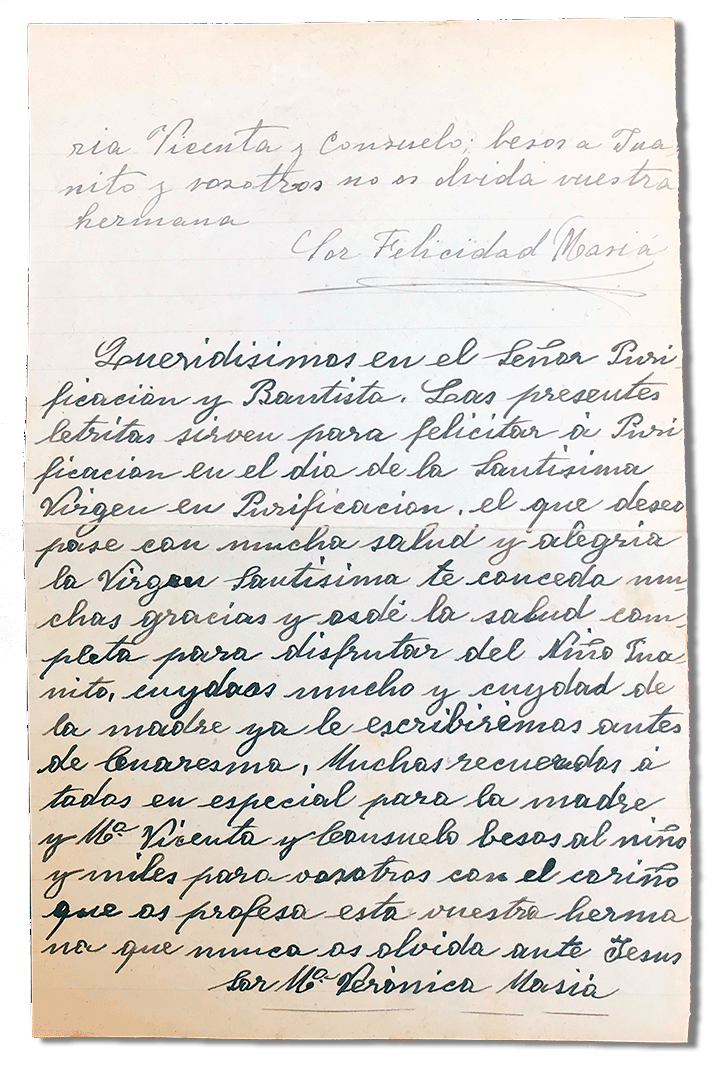 ria Vicenta y Consuelo, besos a Jua-
nito y vosotros no os olvida vuestra
hermana
Sor Felicidad Masiá
Queridisimos en el Señor Puri-
ficación y Bautista. Las presentes
letritas sirven para felicitar á Puri
ficacion en el dia de la Santisima
Virgen en Purificacion, el que deseo
pase con mucha salud y alegria
la Virgen Santisima te conceda mu-
chas gracias y osdé la salud com-
pleta para disfrutar del Niño Jua-
nito, cuydaos mucho y cuydad de
la madre ya le escribirémos antes
de Cuaresma, Muchos recuerdos á
todos en especial para la madre
y Mª. Vicenta y Consuelo besos al niño
y miles para vosotros con el cariño
que os profesa esta vuestra herma
na que nunca os olvida ante Jesus
Sor Mª. Verónica Masiá